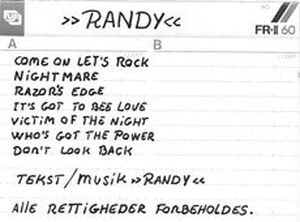 »RANDY«
NO.
FR-II 60
A B
COME ON LET'S ROCK
NIGHTMARE
RAZOR'S EDGE
IT'S GOT TO BEE LOVE
VICTIM OF THE NIGHT
WHO'S GOT THE POWER
DON'T LOOK BACK
TEKST/MUSIK »RANDY«
ALLE RETTIGHEDER FORBEHOLDES.